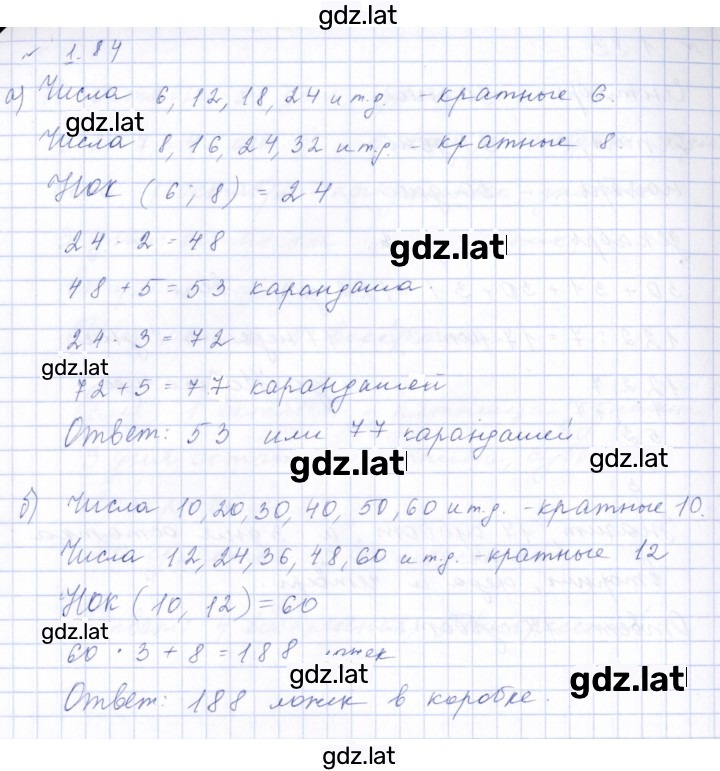 gdz.lat
№ 1.84
а) Числа 6, 12, 18, 24 и т.д. - кратные 6.
gdz.lat
Числа 8, 16, 24, 32 и т.д. - кратные 8.
НОК (6; 8) = 24
24 · 2 = 48
gdz.lat
48 + 5 = 53 карандаша.
24 · 3 = 72
gdz.lat
72 + 5 = 77 карандашей
Ответ: 53 или 77 карандашей
gdz.lat
gdz.lat
б) Числа 10, 20, 30, 40, 50, 60 и т.д. - кратные 10.
Числа 12, 24, 36, 48, 60 и т.д. - кратные 12
НОК (10, 12) = 60
gdz.lat
60 · 3 + 8 = 188 ложек
gdz.lat
gdz.lat
Ответ: 188 ложек в коробке.
gdz.lat